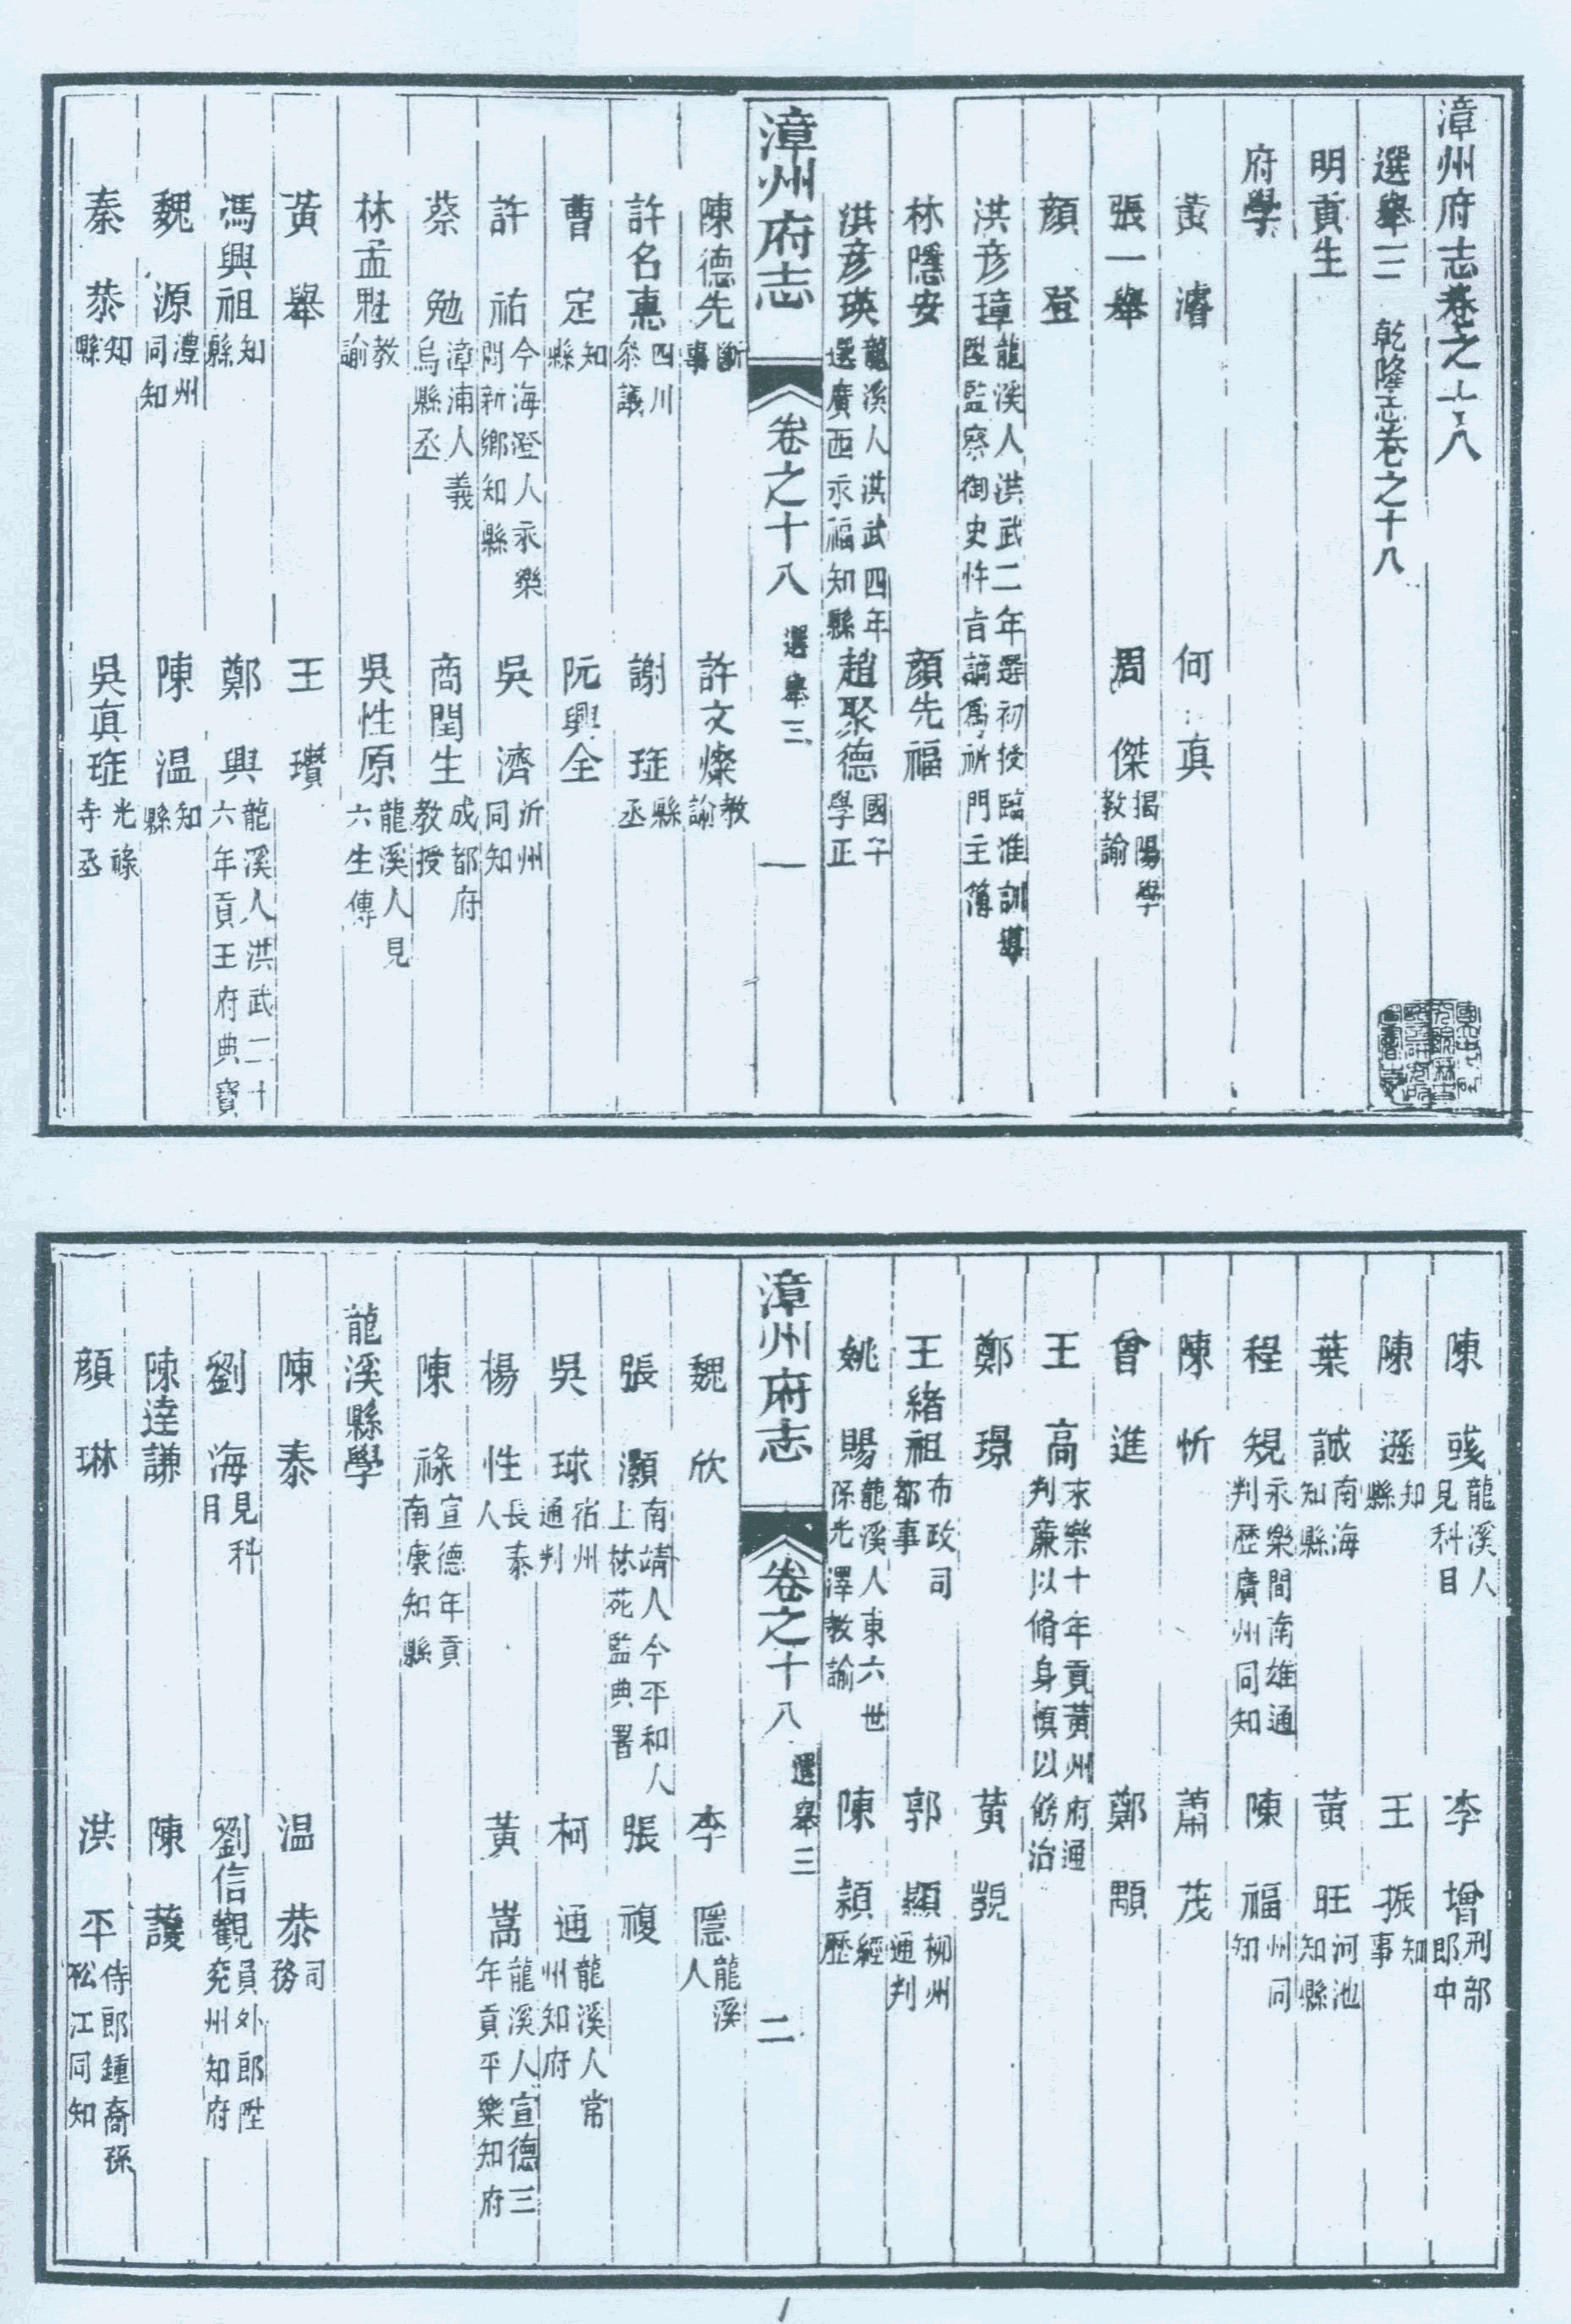 漳州府志卷之十八
選舉三 乾隆志卷之十八
明貢生
府學
黃濬 何真
張一舉 周傑揭陽學教諭
顔登
洪彦璋龍溪人洪武二年選初授臨淮訓導陞監察御史忤旨謫爲祈門主簿
林隱安 顔先福
洪彦瑛龍溪人洪武四年選廣西永福知縣 趙聚德國子學正
漳州府志 卷之十八 選舉三 一
陳德先斷事 許文燦教諭
許名惠四川叅議 謝珽縣丞
曹定知縣 阮興全
許祐今海澄人永樂間新鄉知縣 吳濟沂州同知
蔡勉漳浦人義烏縣丞 商閏生成都府教授
林孟魁教諭 吳性原龍溪人見六生傳
黃舉 王瓚
馮興祖知縣 鄭興龍溪人洪武二十六年貢王府典寶
魏源澧州同知 陳温知縣
秦恭知縣 吳真珽光祿寺丞
陳彧龍溪人見科目 李增刑部郎中
陳遜知縣 王振知事
葉誠南海知縣 黃旺河池知縣
程規永樂間南雄通判歷廣州同知 陳福州同知
陳忻 蕭茂
曾進 鄭顒
王高永樂十年貢黃州府通判亷以脩身慎以飭治
鄭璟 黃覬
王緒祖布政司都事 郭顯柳州通判
姚賜龍溪人東六世孫光澤教諭 陳潁經歷
漳州府志 卷之十八 選舉三 二
魏欣 李隱龍溪人
張灝南靖人今平和人上林苑監典署 張複
吳球宿州通判 柯通龍溪人常州知府
楊性長泰人 黃嵩龍溪人宣德三年貢平樂知府
陳祿宣德年貢南康知縣
龍溪縣學
陳泰 温恭司務
劉海見科目 劉信觀員外郎陞兖州知府
陳達謙 陳護
顔琳 洪平侍郎鍾裔孫松江同知
1